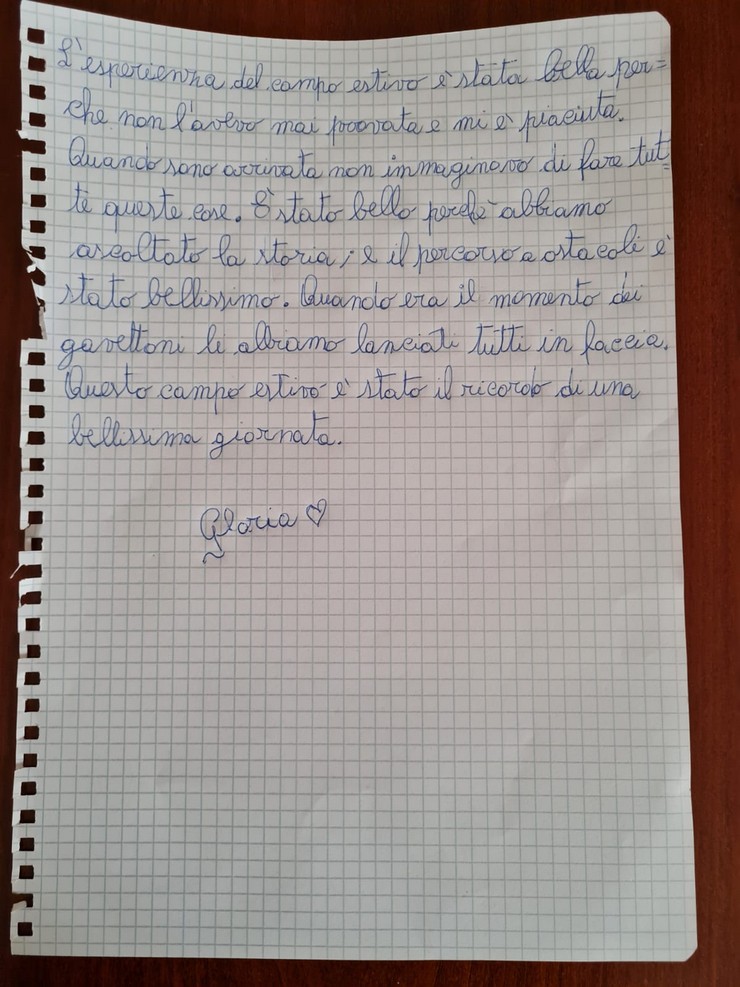 L'esperienza del campo estivo è stata bella per=
che non l'avevo mai provata e mi è piaciuta.
Quando sono arrivata non immaginavo di fare tut=
te queste cose. È stato bello perché abbiamo
ascoltato la storia; e il percorso a ostacoli è
stato bellissimo. Quando era il momento dei
gavettoni li abbiamo lanciati tutti in faccia.
Questo campo estivo è stato il ricordo di una
bellissima giornata.
Gloria ♡